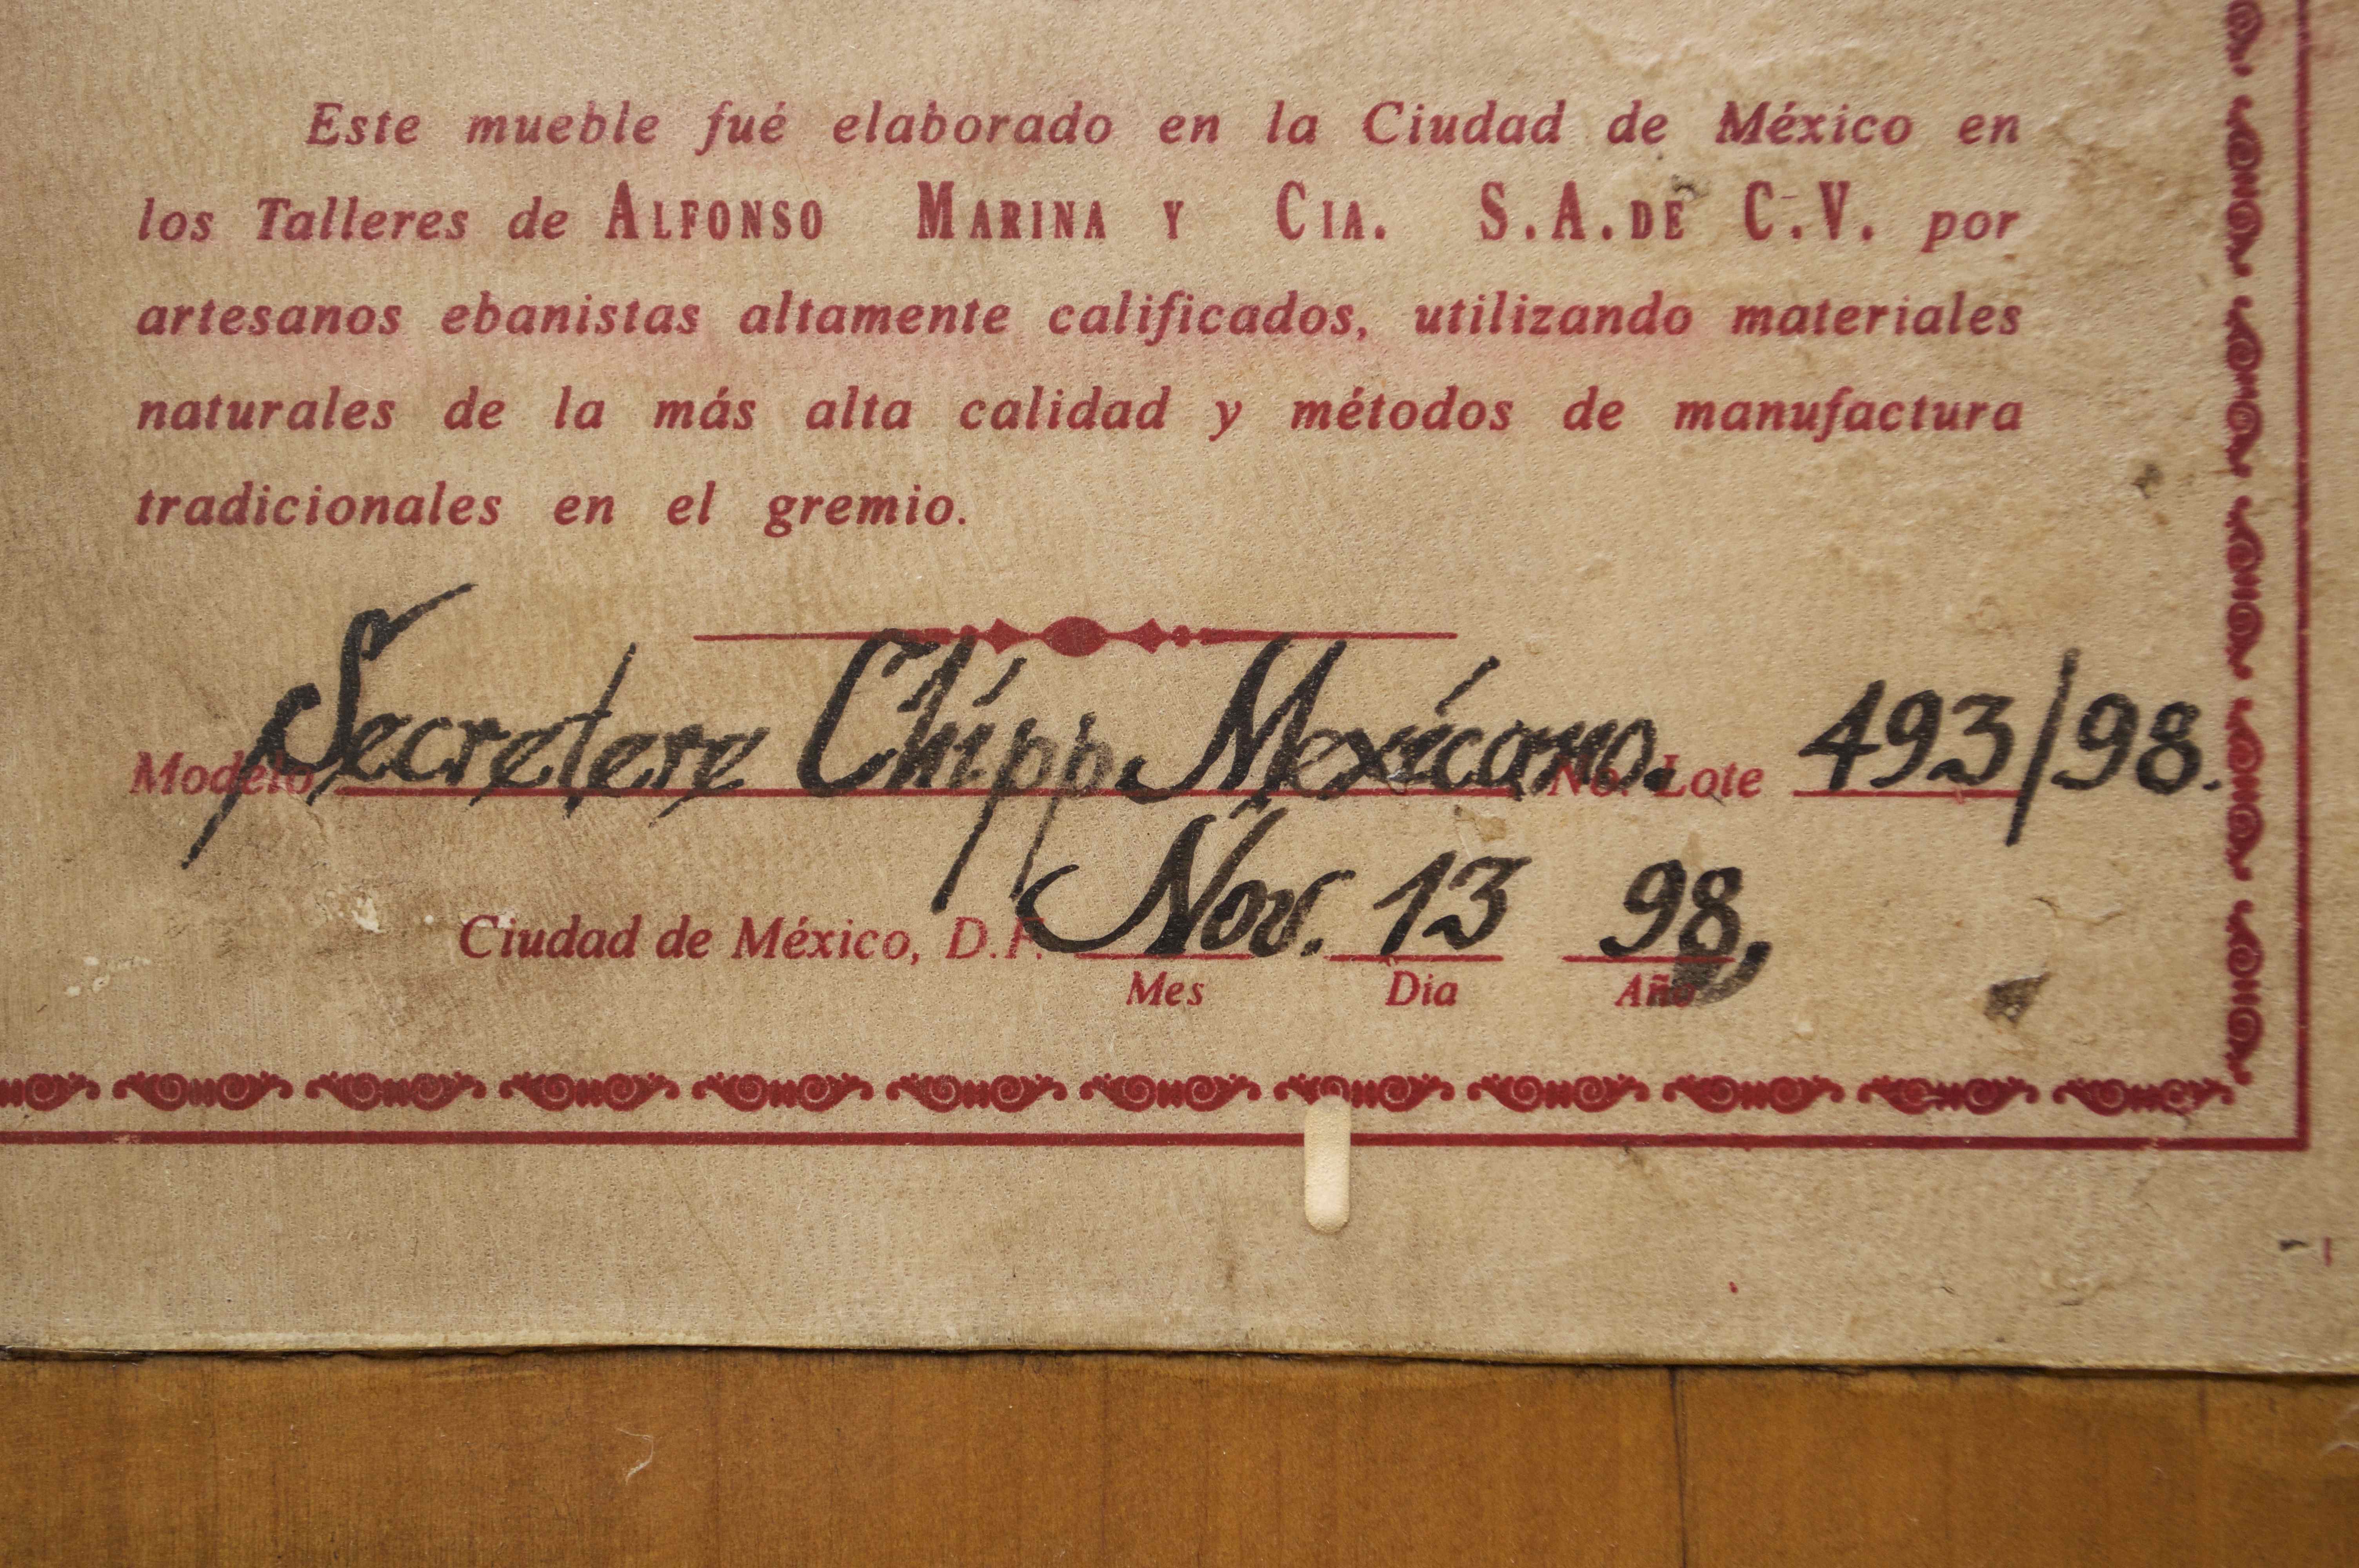 Este mueble fué elaborado en la Ciudad de México en
los Talleres de ALFONSO MARINA Y CIA. S.A. DE C.V. por
artesanos ebanistas altamente calificados, utilizando materiales
naturales de la más alta calidad y métodos de manufactura
tradicionales en el gremio.
Modelo Secretere Chipp Mexicano. No. Lote 493/98.
Ciudad de México, D.F. Nov. 13 98,
Mes Dia Año